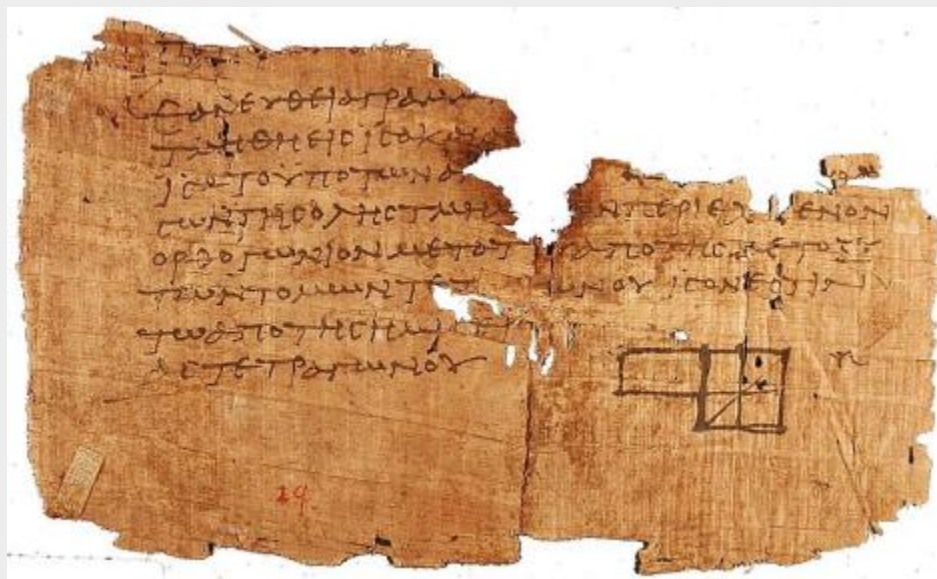 ΕΑΝΕΥΘΕΙΑΓΡΑΜΜ
ΤΜΗΘΗΕΙΣΙΣΑΚΑΙΑ
ΙΣΑΤΟΥΠΟΤΩΝΑ
ΤΩΝΤΗΣΟΛΗΣΤΜΗΜ ΝΠΕΡΙΕΧ ΜΕΝΟΝ
ΟΡΘΟΓΩΝΙΟΝΜΕΤΟΥ ΑΠΟΤΗΣ ΜΕΤΟΞΥ
ΤΩΝΤΟΜΩΝΤΕΤ ΩΝΟΥΙΣΟΝΕΣΤΙΝ
ΤΩΑΠΟΤΗΣΗΜΙΣΕΙ
ΑΣΤΕΤΡΑΓΩΝΟΥ
29